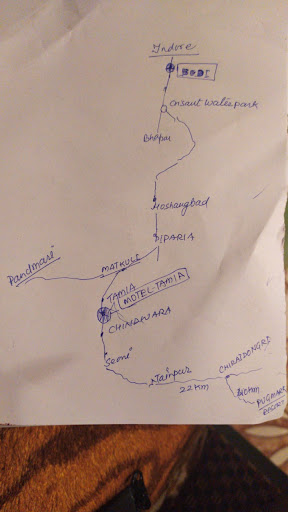 Indore
BODI
Crisaut Waterpark
Bhopal
Hoshangbad
PIPARIA
MATKULI
Pandmari
TAMIA
MOTEL-TAMIA
CHINAWARA
Seoni
Nainpur
22 KM
CHIRAIDONGRI
40KM
PUGMARK
RESORT